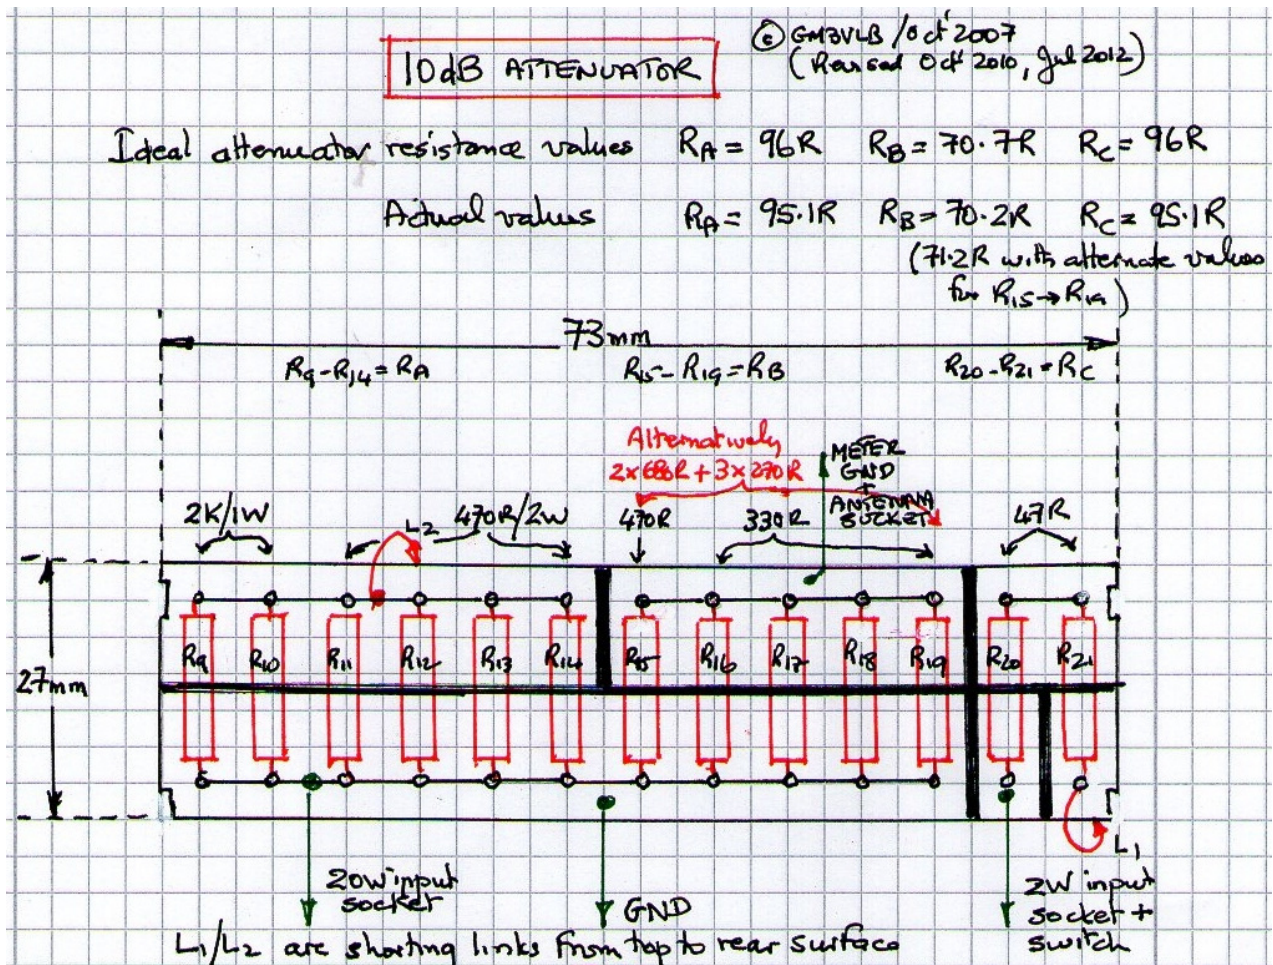 © GM3VLB / Oct 2007
(Revised Oct 2010, Jul 2012)
10dB ATTENUATOR
Ideal attenuator resistance values RA = 96R RB = 70.7R RC = 96R
Actual values RA = 95.1R RB = 70.2R RC = 95.1R
(71.2R with alternate values
for R15→R19)
73mm
R9-R14=RA R15-R19=RB R20-R21=RC
Alternatively
2×680R + 3×270R
METER
GND
+
ANTENNA
SOCKET
2K/1W L2 470R/2W 470R 330R 47R
R9 R10 R11 R12 R13 R14 R15 R16 R17 R18 R19 R20 R21
27mm
L1
20W input
socket
GND
2W input
socket +
switch
L1/L2 are shorting links from top to rear surface